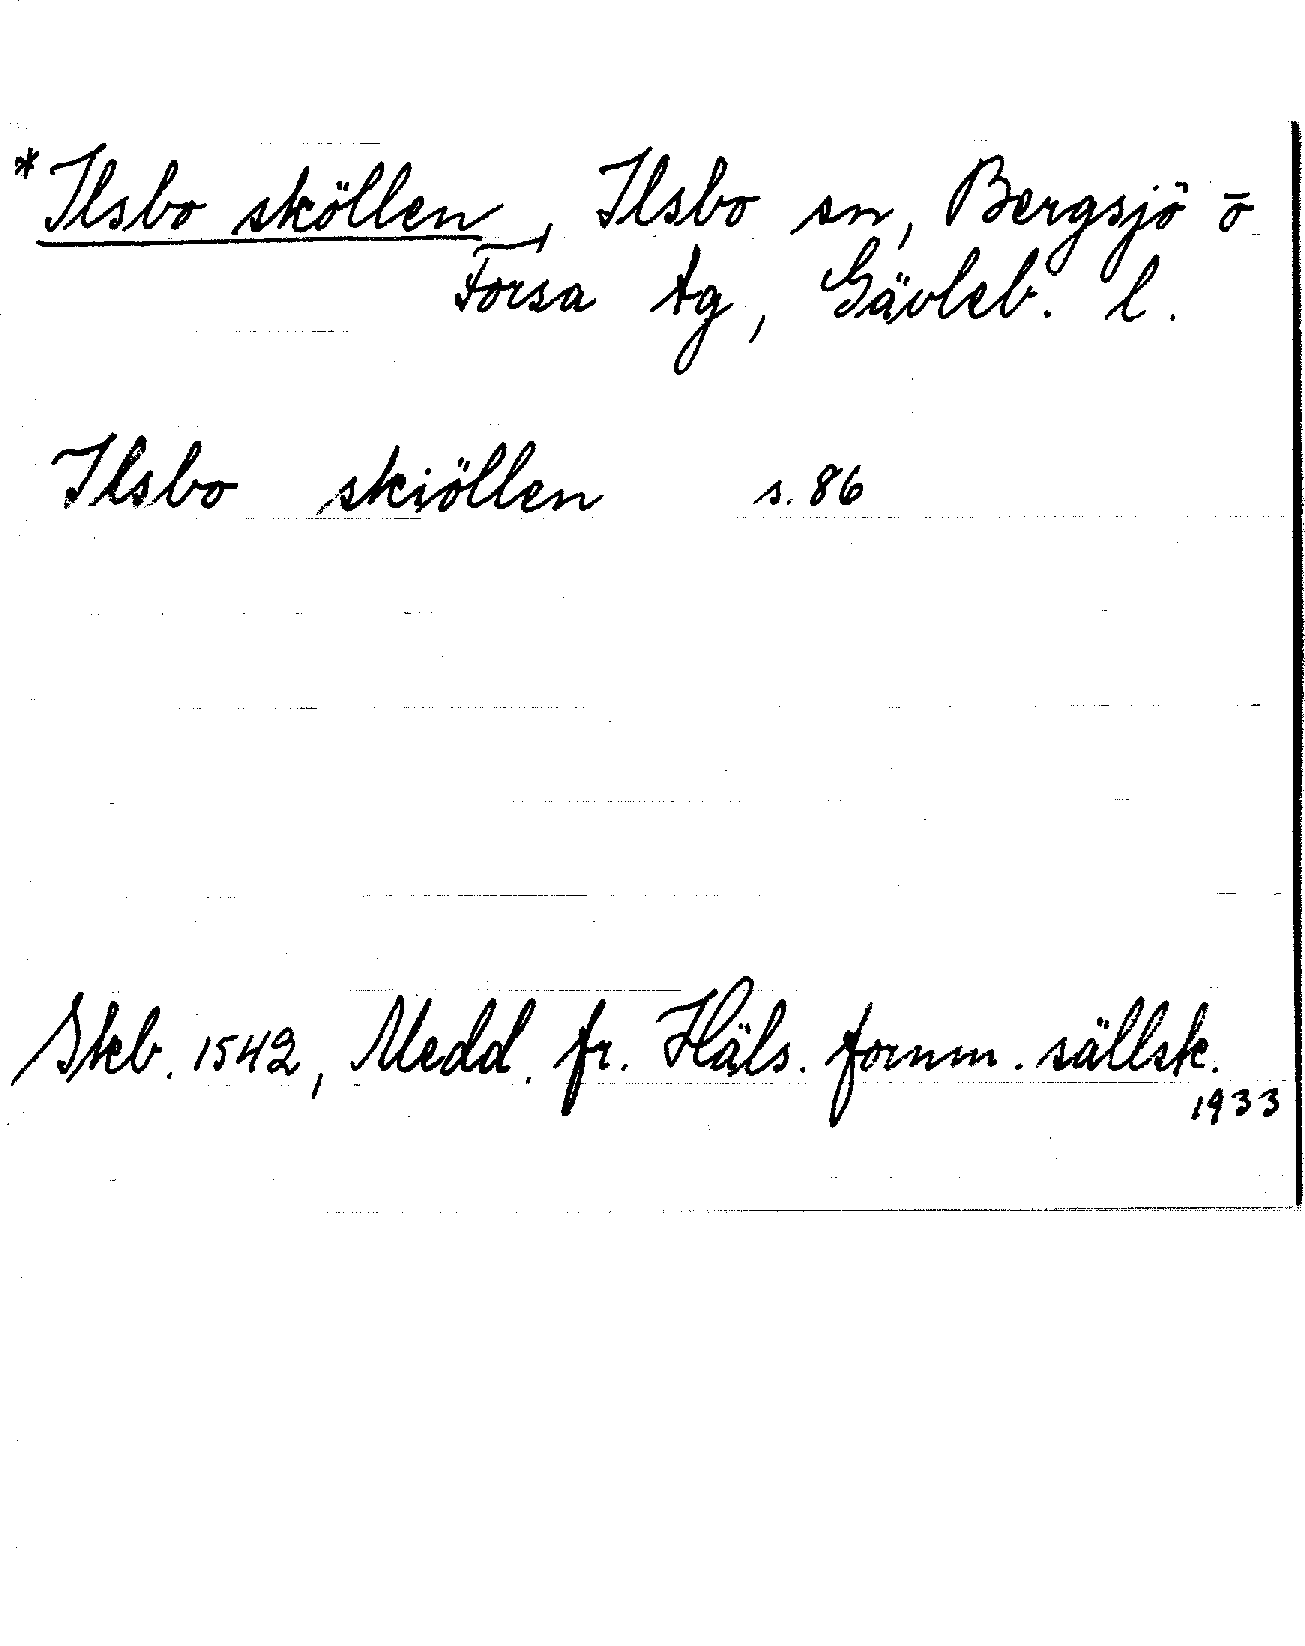 *Ilsbo sköllen, Ilsbo sn, Bergsjö o
Forsa tg, Gävleb. l.
Ilsbo skiöllen s. 86
Skb. 1542, Medd. fr. Häls. fornm. sällsk.
1933